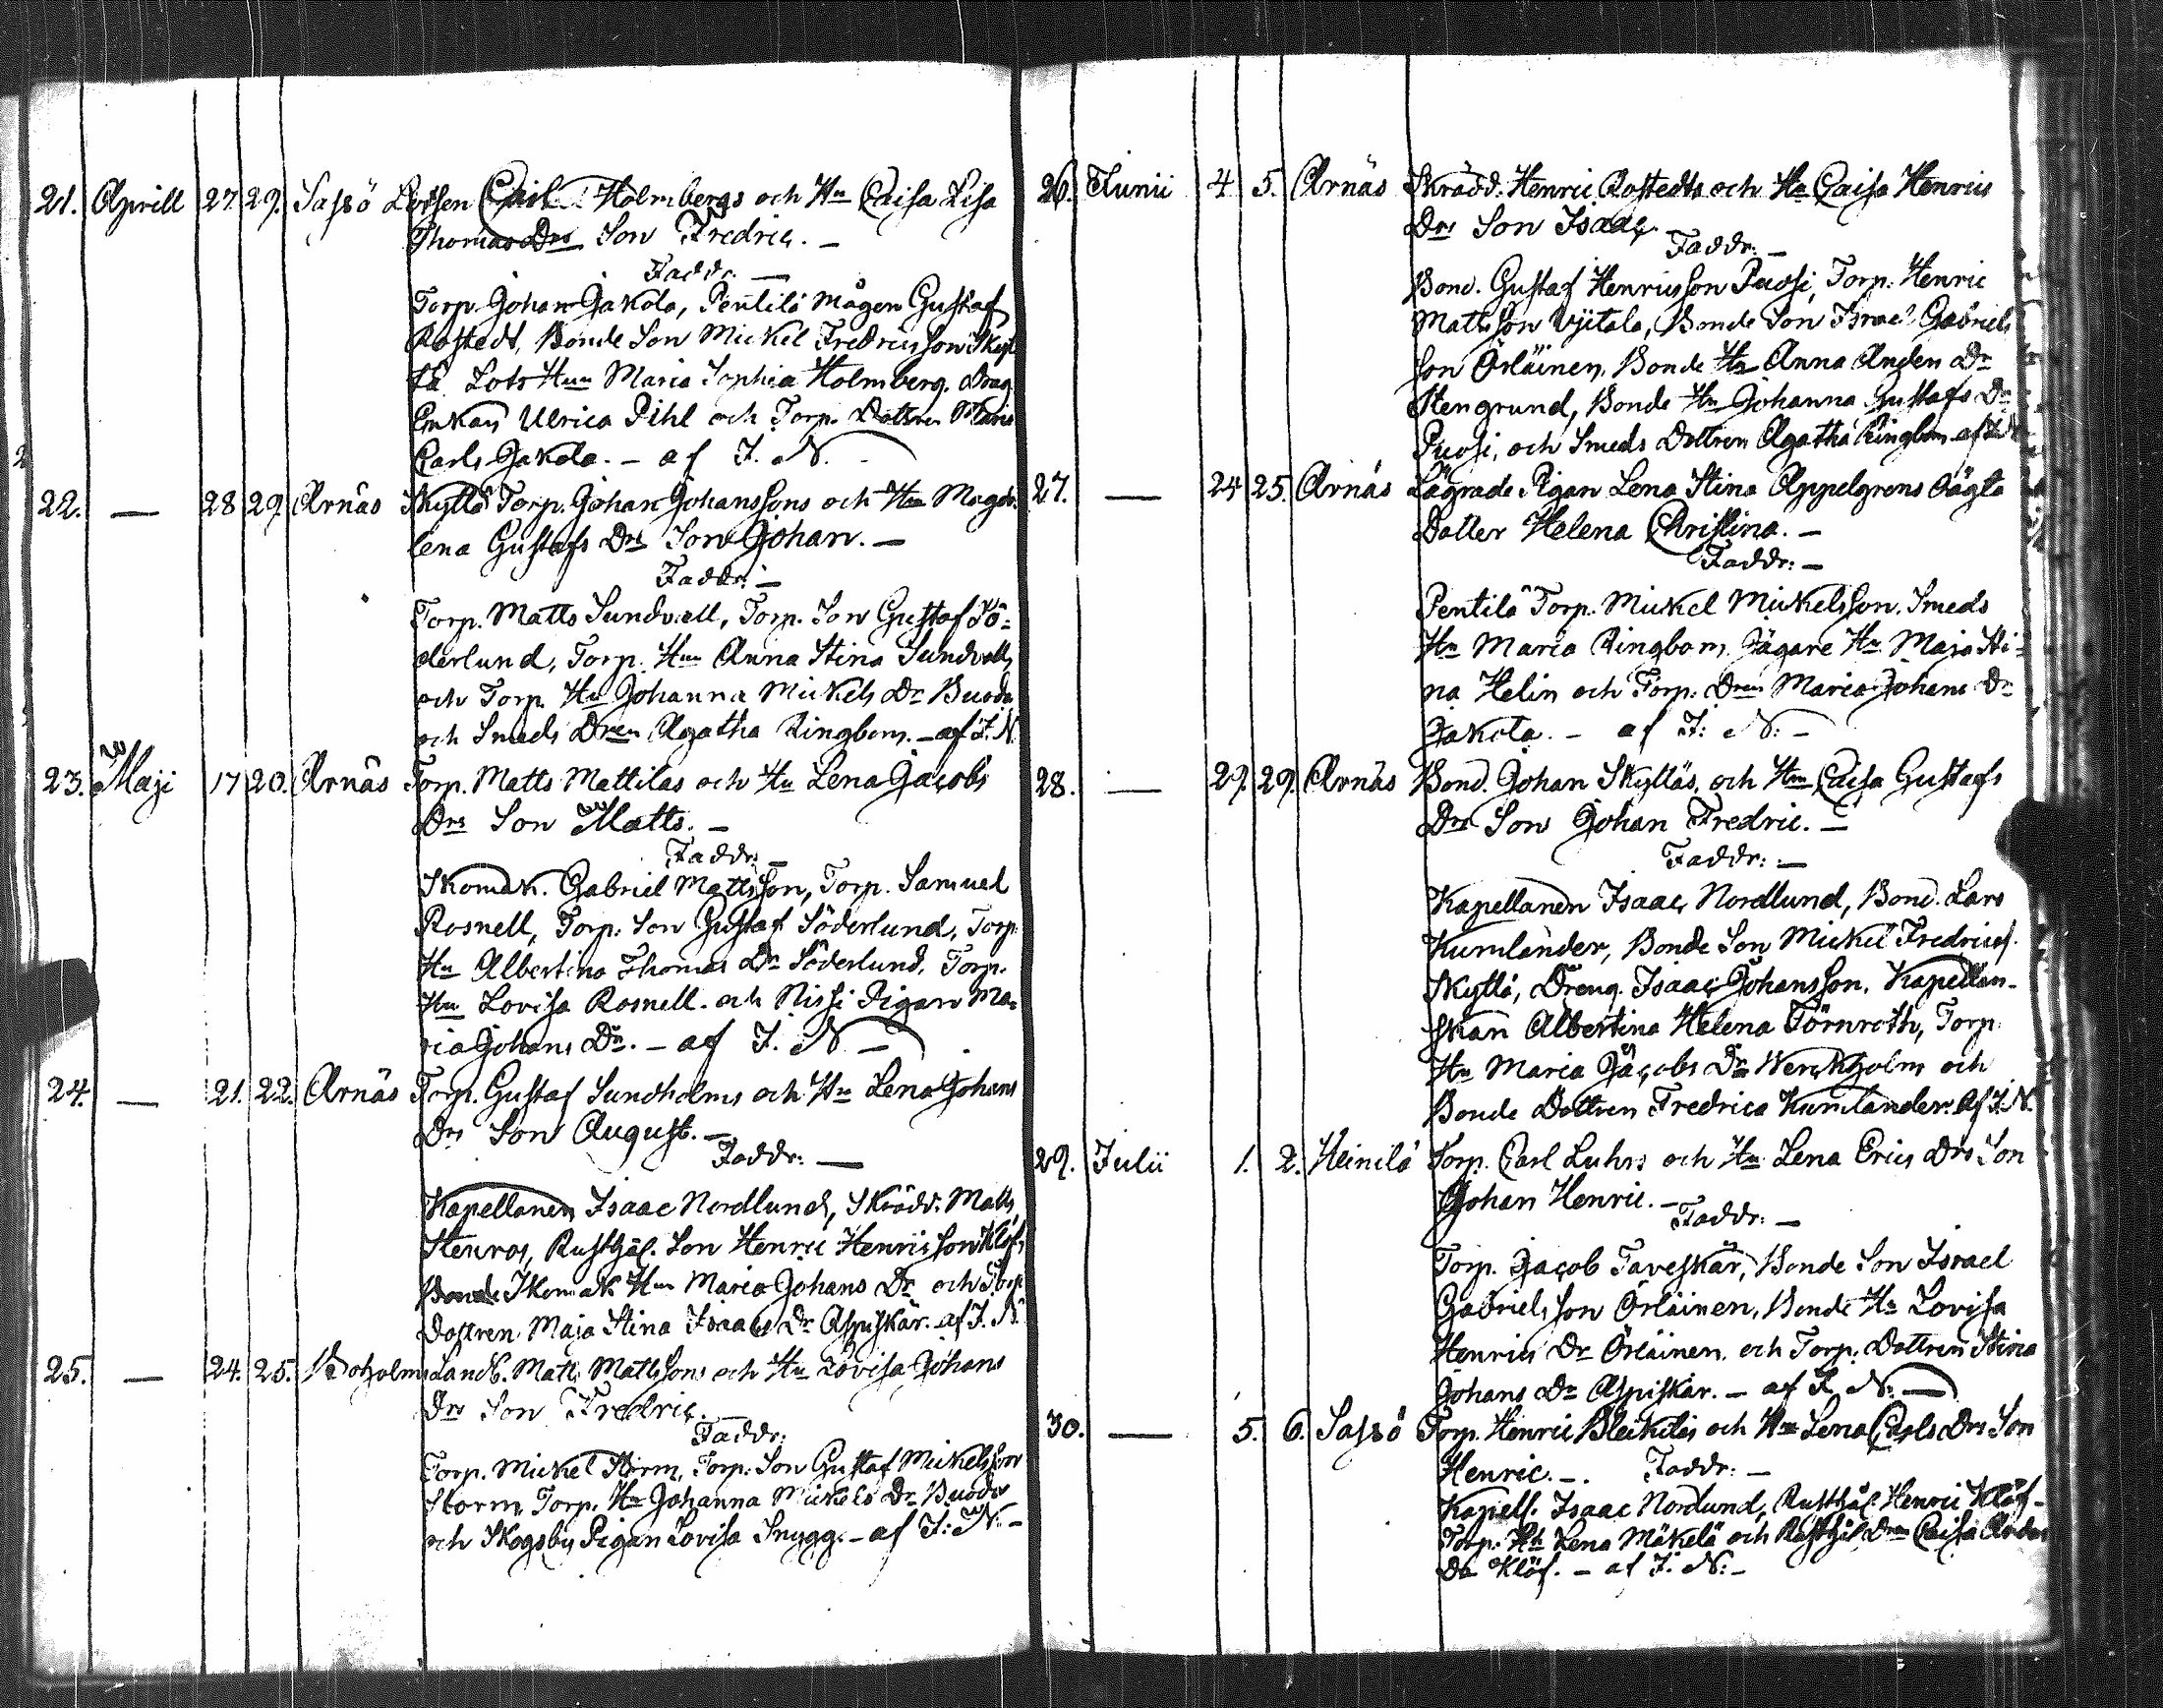 21. Aprill 27. 29. Sassö Lotsen Carl Holmbergs och Hu Caisa Lisa
Thomas Drs Son Fredric. —
Faddr. —
Torp. Johan Jakola, Pentilä Mågen Gustaf
Rostedt, Bonde Son Mickel Fredricsson Skyt
tä Lots Hun Maria Sophia Holmberg. Drag
Enkan Ulrica Pihl och Torp. Dottren Maria
Carls Jakola. — af I. N.
22. — 28 29. Arnäs Skyttä Torp. Johan Johanssons och Hu Magda
lena Gustafs Drs Son Johan. —
Faddr: —
Torp. Matts Sundvall, Torp. Son Gustaf Sö=
derlund, Torp. Hun Anna Stina Sundvall,
och Torp. Hu Johanna Mickels Dr Buoda
och Smeds Dren Agatha Ringbom. — af I. N.
23. Maji 17 20. Arnäs Torp. Matts Mattilas och Hu Lena Jacobs
Drs Son Matts. —
Faddr: —
Skomak. Gabriel Mattsson, Torp. Samuel
Rosnell, Torp. Son Gustaf Söderlund, Torp.
Hu Albertina Thomas Dr Söderlund, Torp.
Hu Lovisa Rosnell och Nissi Pigan Ma=
ria Johans Dr. — af I. N. —
24. — 21. 22. Arnäs Torp. Gustaf Sundholms och Hu Lena Johans
Drs Son August. —
Faddr: —
Kapellanen Isaac Nordlund, Skrädd: Matts
Stenros, Rusthål. Son Henric Henricsson Klöf,
Skomak Hun Maria Johans Dr och Torp.
Dottren Maja Stina Isaacs Dr Aspiskär. af I. N.
25. — 24. 25. Landb. Matts Mattssons och Hu Lovisa Johans
Drs Son Fredric.
Faddr:
Torp. Mickel Storm, Torp. Son Gustaf Mickelsson
Storm, Torp. Hu Johanna Mickels Dr Buoda
och Skogsby Pigan Lovisa Snygg. — af I. N. —
26. Junii 4 5. Arnäs Skrädd: Henric Rostedts och Hu Caisa Henrics
Drs Son Isaac.
Faddr: —
Bond. Gustaf Henricsson Puosi, Torp. Henric
Mattsson Vjitala, Bonde Son Israel Gabriels
son Örläinen, Bonde Hu Anna Anders Dr
Stengrund, Bonde Hu Johanna Gustafs Dr
Puosi, och Smeds Dottren Agatha Ringbom af I. N
27. — 24 25. Arnäs Lägrade Pigan Lena Stina Appelgrens oägta
Dotter Helena Christina. —
Faddr: —
Pentilä Torp. Mickel Mickelsson, Smeds
Hu Maria Ringbom, Jägare Hu Maja Sti=
na Helin och Torp. Dren Maria Johans Dr
Jakola. — af I. N. —
28. — 27. 29. Arnäs Bond. Johan Skyttäs, och Hun Caisa Gustafs
Drs Son Johan Fredric. —
Faddr: —
Kapellanen Isaac Nordlund, Bond. Lars
Kumlander, Bonde Son Mickel Fredricss.
Skyttä, Dreng. Isaac Johansson, Kapellan-
skan Albertina Helena Törnroth, Torp.
Hu Maria Jacobs Dr Werkholm och
Bonde Dottren Fredrica Kumlander. Af I. N.
29. Julii 1. 2. Heinilä Torp. Carl Luhrs och Hu Lena Erics Drs Son
Johan Henric. —
Faddr: —
Torp. Jacob Taveskär, Bonde Son Israel
Gabrielsson Örläinen, Bonde Hu Lovisa
Henrics Dr Örläinen och Torp. Dottren Stina
Johans Dr Aspiskär. — af I. N. —
30. — 5. 6. Sassö Torp. Henric Bleikiläs och Hu Lena Carls Drs Son
Henric. — Faddr: —
Kapell. Isaac Nordlund, Rusthål. Henric Klöf —
Torp. Hu Lena Mäkelä och Rusthål Dren Caisa Anders
Dr Klöf. — af I. N. —